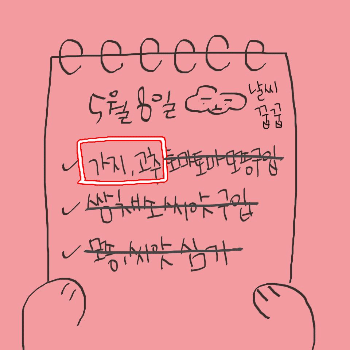 5월 8일
날씨
꿉꿉
가지, 고추 토마토 모종구입
쌈채소 씨앗 구입
모종, 씨앗 심기